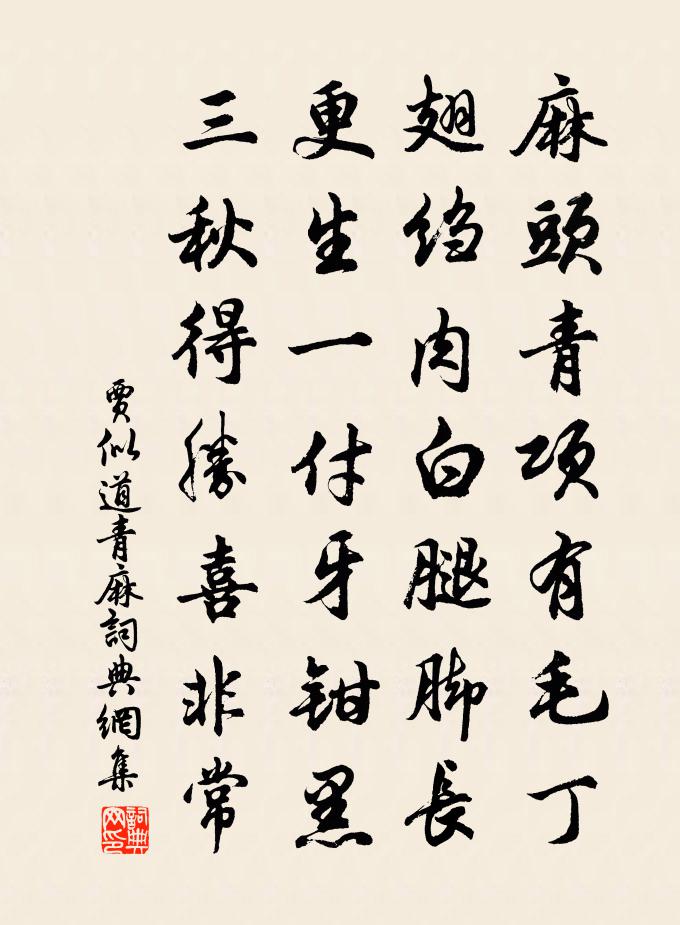 麻頭青項有毛丁
翅绉肉白腿脚長
更生一付牙鉗黑
三秋得勝喜非常
賈似道青麻詞典網集
詞典网印